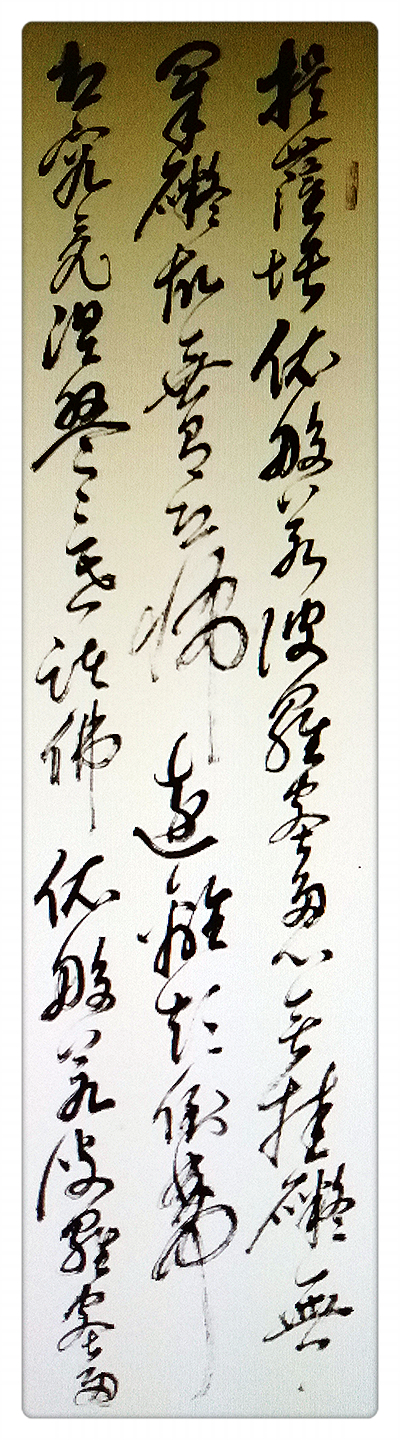 提薩埵依般若波羅蜜多心無挂礙無
罣礙故無有恐怖遠離顛倒夢
想究竟涅槃三世諸佛依般若波羅蜜多